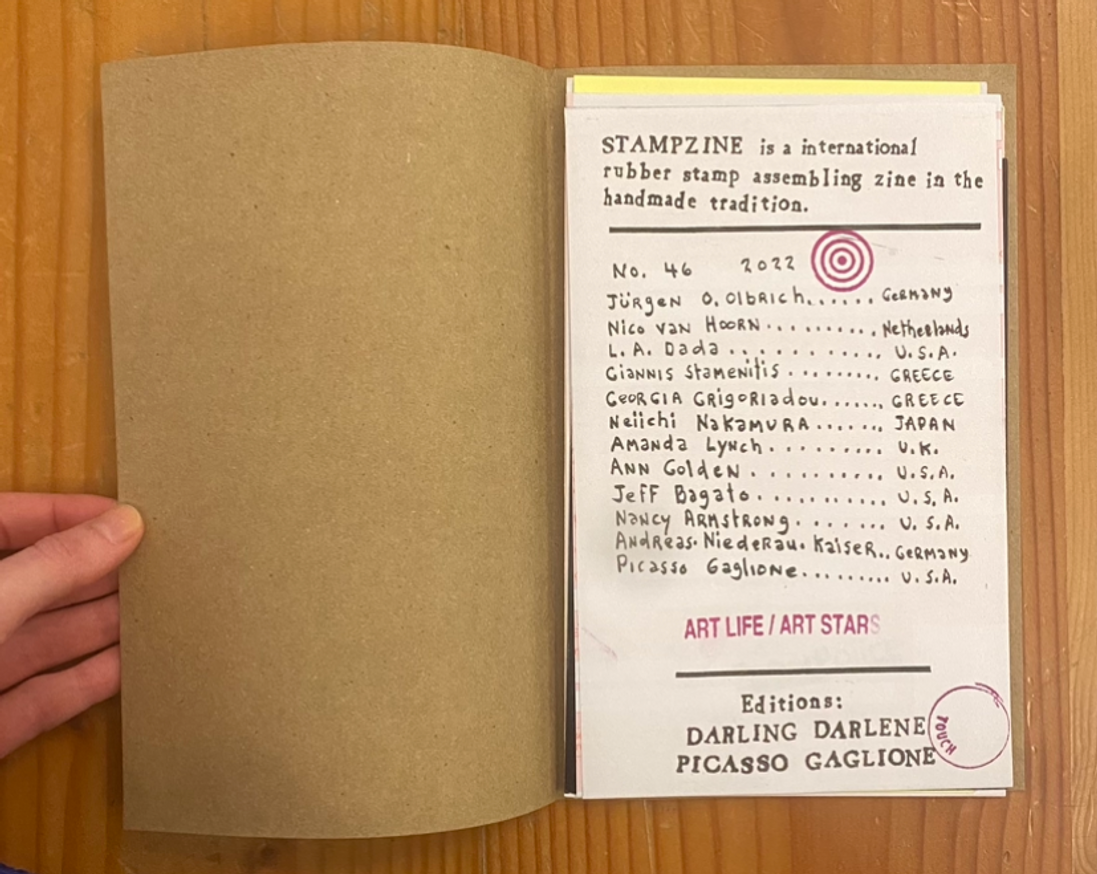 STAMPZINE is a international
rubber stamp assembling zine in the
handmade tradition.
No. 46 2022
JÜRGEN O. OlbRICh...... GeRMANY
Nico VAN HOORN.......... Netherlands
L.A. Dada ............ U.S.A.
GIANNIS Stamenitis ......... GREECE
GeORGIA GRigoRIadou...... GREECE
Neiichi NakaMURA ....... JAPAN
AMANda LyNch.......... U.K.
ANN Golden ........... U.S.A.
JeFF Bagato............ U.S.A.
NANCY ARMstRONG........ U.S.A.
ANdReas. NiedeRau. KaiseR.. GeRMANY
Picasso GaglioNe.......... U.S.A.
ART LIFE / ART STARS
Editions:
DARLING DARLENE
PICASSO GAGLIONE
TOUCH